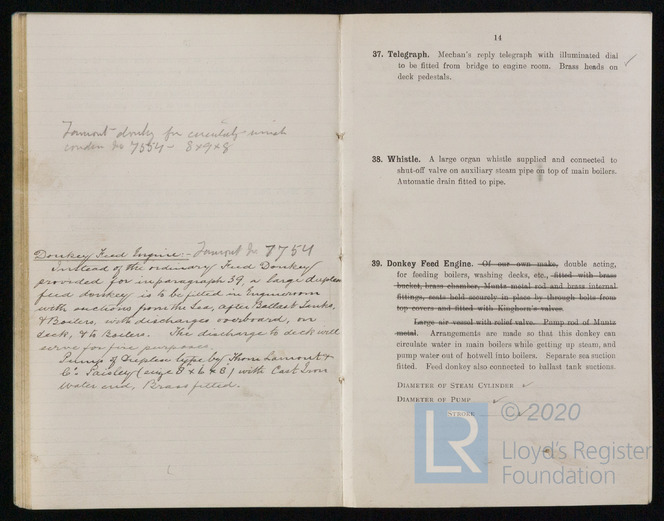 Lamont donky for circulatg winch
conden No 7554 - 8x9x8
Donkey Feed Engine:- Lamont No 7754
Instead of the ordinary Feed Donkey
provided for in paragraph 39, a large duplex
feed donkey is to be fitted in Engineroom
with suctions from the Sea, after Ballast Tanks,
& Boilers, with discharges overboard, on
deck, & to Boilers. The discharge to deck will
serve for fire purposes.
Pump of Duplex type by Thom Lamont &
Co. Paisley (size 8 x 6 x 8) with Cast Iron
water end, Brass fitted.
14
37. Telegraph. Mechan's reply telegraph with illuminated dial
to be fitted from bridge to engine room. Brass heads on
deck pedestals.
38. Whistle. A large organ whistle supplied and connected to
shut-off valve on auxiliary steam pipe on top of main boilers.
Automatic drain fitted to pipe.
39. Donkey Feed Engine. Of our own make, double acting,
for feeding boilers, washing decks, etc., fitted with brass
bucket, brass chamber, Muntz metal rod and brass internal
fittings, seats held securely in place by through bolts from
top covers and fitted with Kinghorn's valves.
Large air vessel with relief valve. Pump rod of Muntz
metal. Arrangements are made so that this donkey can
circulate water in main boilers while getting up steam, and
pump water out of hotwell into boilers. Separate sea suction
fitted. Feed donkey also connected to ballast tank suctions.
Diameter of Steam Cylinder
Diameter of Pump
Stroke
© 2020
LR
Lloyd's Register
Foundation